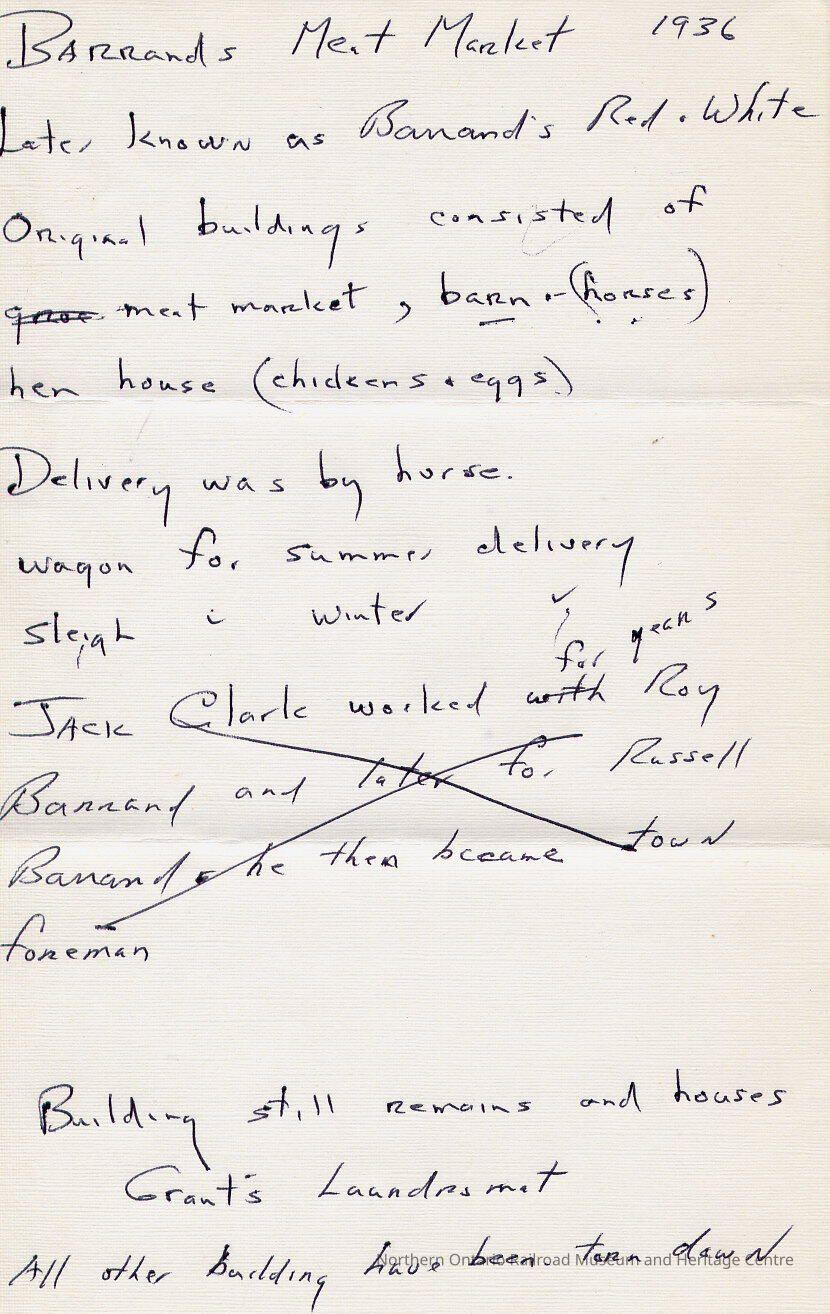 Barrands Meat Market 1936
Later known as Barrand's Red & White
Original buildings consisted of
meat market, barn - (horses)
hen house (chickens & eggs)
Delivery was by horse.
wagon for summer delivery
sleigh " winter
for years
Jack Clark worked with Roy
Barrand and later for Russell
Barrand & he then became town
foreman
Building still remains and houses
Grant's Laundromat
All other building have been torn down
Northern Ontario Railroad Museum and Heritage Centre